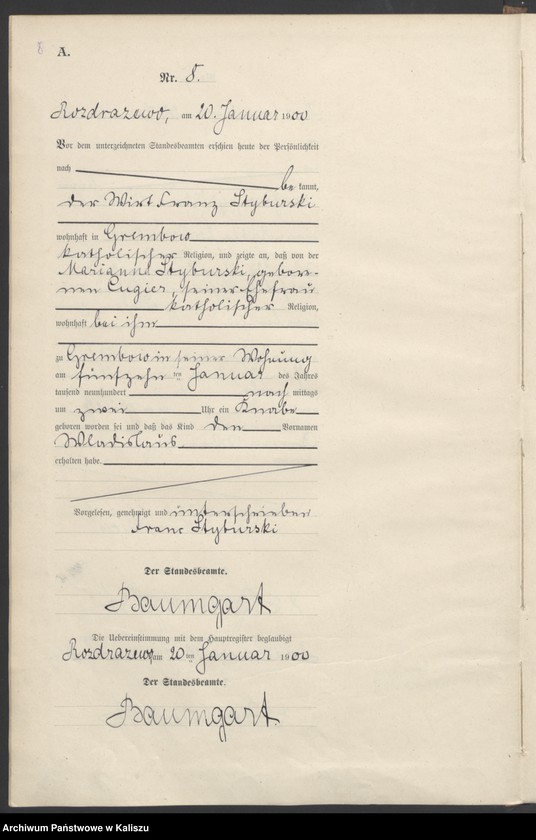 8
A.
Nr. 8.
Rozdrazewo, am 20. Januar 1900
Vor dem unterzeichneten Standesbeamten erschien heute der Persönlichkeit
nach
bekannt,
der Wirt Franz Styburski
wohnhaft in Grembow
katholischer Religion, und zeigte an, daß von der
Marianna Styburski, gebore-
nen Cugier, seiner Ehefrau
katholischer Religion,
wohnhaft bei ihm
zu Grembow in seiner Wohnung
am fünfzehn ten Januar des Jahres
tausend neunhundert nachmittags
um zwei Uhr ein Knabe
geboren worden sei und daß das Kind den Vornamen
Wladislaus
erhalten habe.
Vorgelesen, genehmigt und unterschrieben
Franc Styburski
Der Standesbeamte.
Baumgart
Die Uebereinstimmung mit dem Hauptregister beglaubigt
Rozdrazewo, am 20 ten Januar 1900
Der Standesbeamte.
Baumgart.
Archiwum Państwowe w Kaliszu